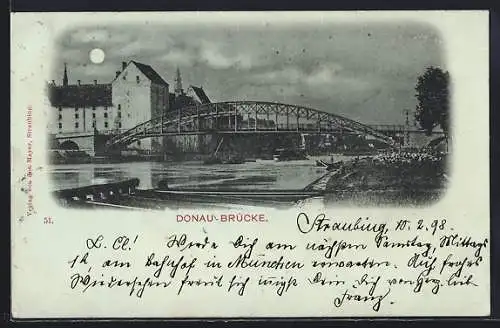 Verlag von Max Mayer, Straubing.
51.
DONAU-BRÜCKE.
Straubing, 10. 2. 98.
L. Cl! Werde Dich am nächsten Samstag, Mittags
am Bahnhof in München erwarten. Auf frohes
Wiedersehen freut sich Dein Dich von Herz. lieb.
Franz.